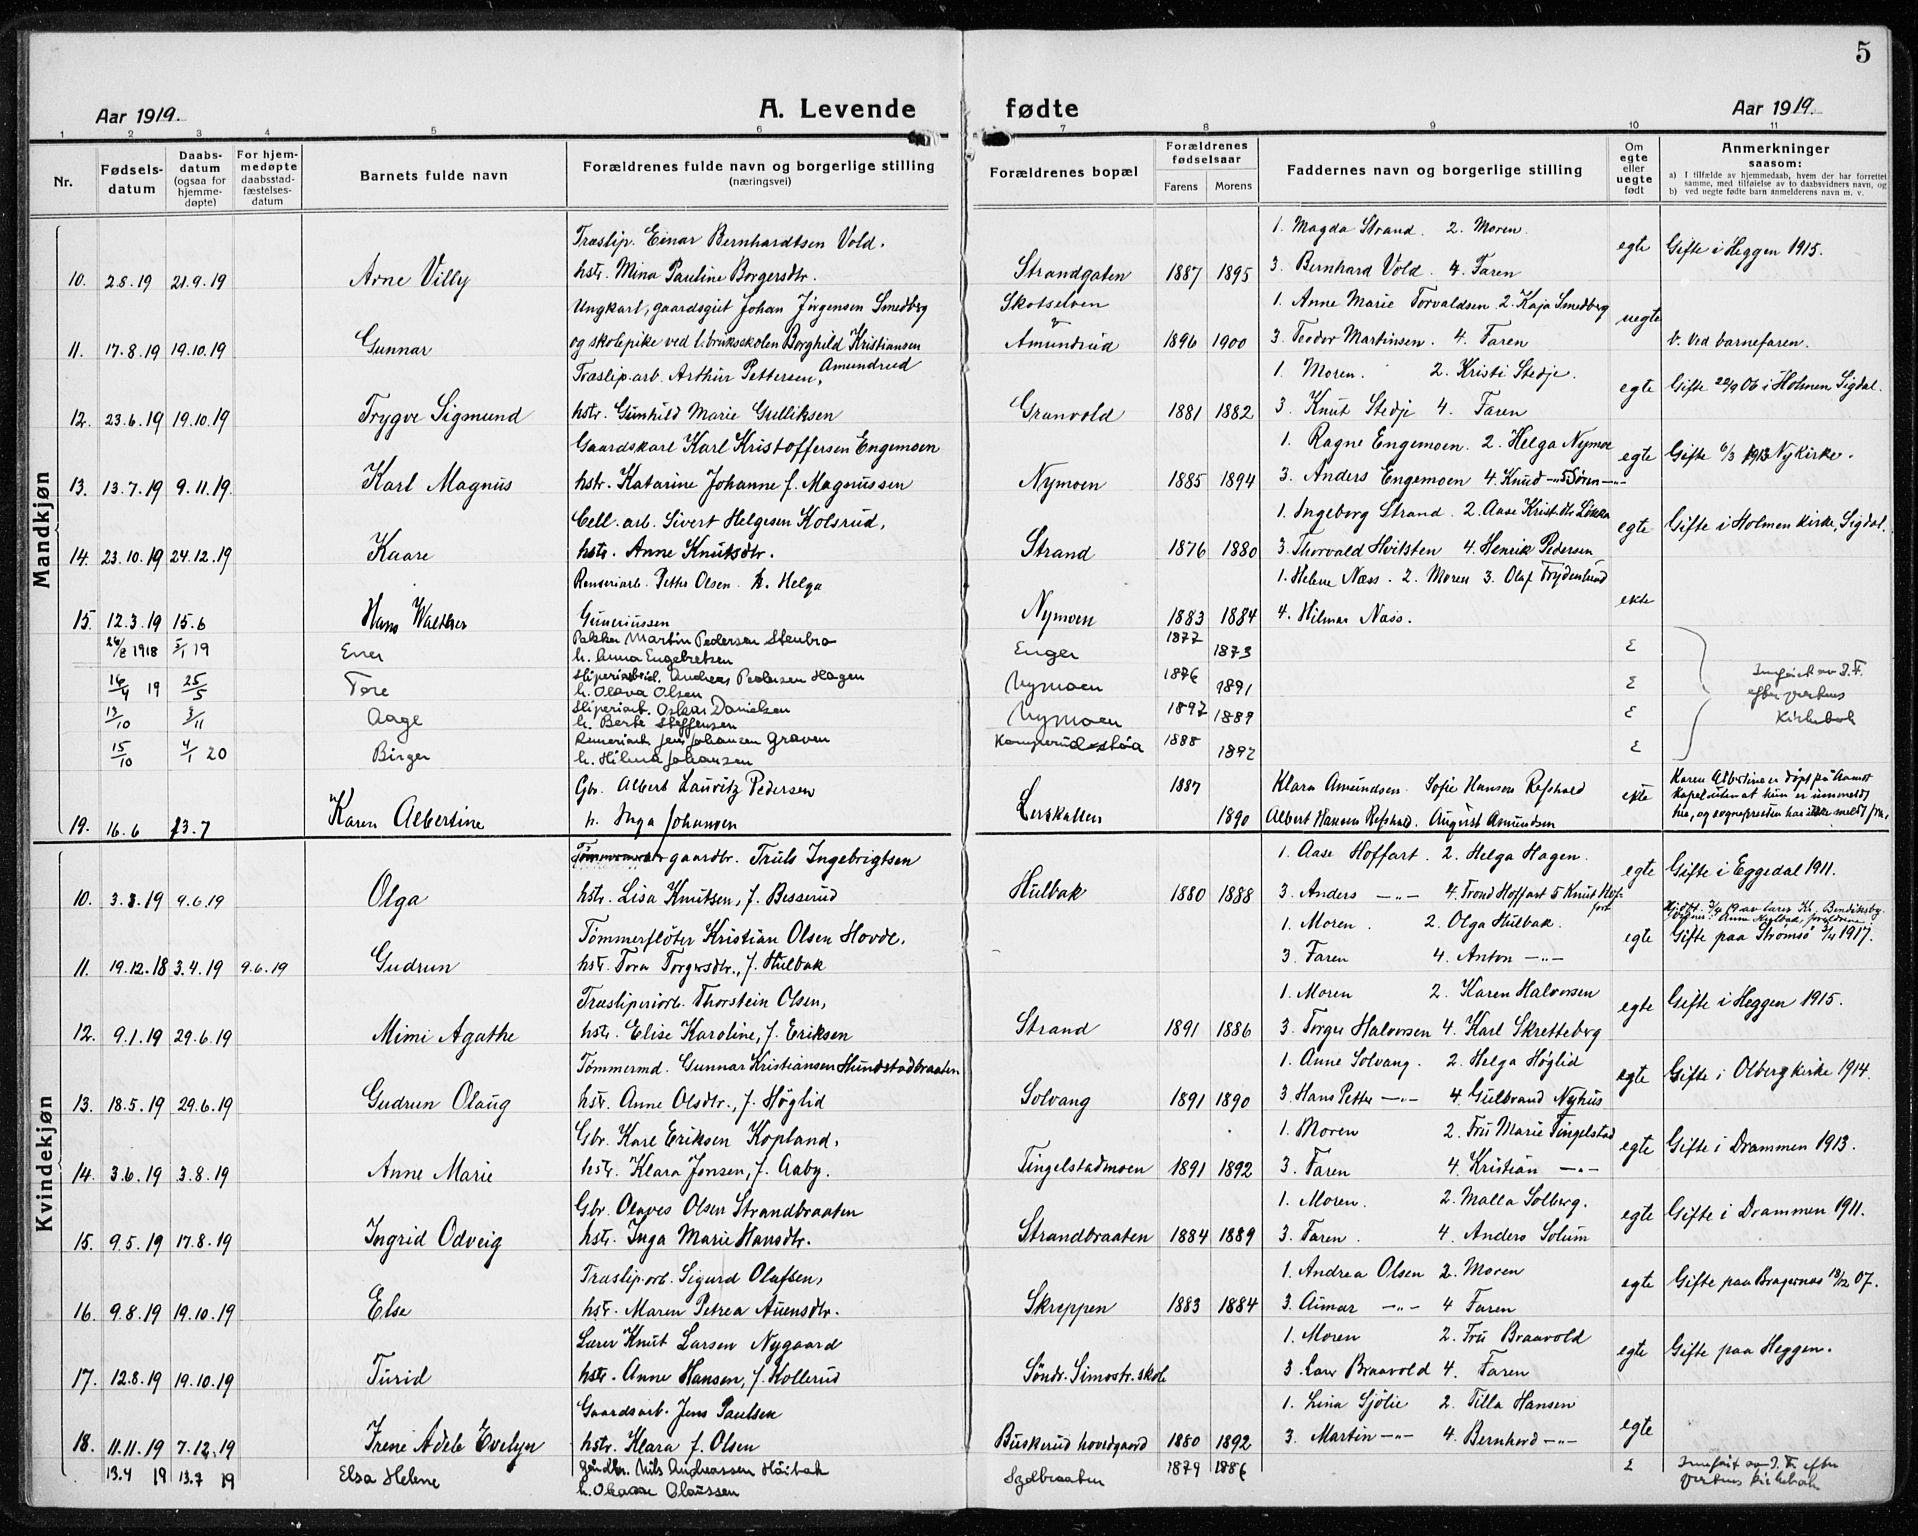 5
Aar 1919. A. Levende fødte Aar 1919.
1 2 3 4 5 6 7 8 9 10 11
Nr. Fødsels-datum Daabs-datum (ogsaa for hjemme-døpte) For hjem-medøpte daabsstad-fæstelses-datum Barnets fulde navn Forældrenes fulde navn og borgerlige stilling (næringsvei) Forældrenes bopæl Forældrenes fødselsaar Farens Morens Faddernes navn og borgerlige stilling Om egte eller uegte født Anmerkninger saasom:
a) I tilfælde av hjemmedaab, hvem der har forrettet samme, med tilføielse av to daabsvidners navn, og
b) ved uegte fødte barn anmelderens navn m. v.
Mandkjøn
Træslip. Einar Bernhardtsen Vold. 1. Magda Strand. 2. Moren.
10. 2.8.19 21.9.19 Arne Villy hstr. Mina Pauline Borgersdtr. Strandgaten 1887 1895 3. Bernhard Vold. 4. Faren egte Gifte i Heggen 1915.
Ungkarl, gaardsgut Johan Jørgensen Smedberg Skotselven 1. Anne Marie Torvaldsen 2. Kaja Smedberg
11. 17.8.19 19.10.19 Gunnar og skolepike ved l.bruksskolen Borghild Kristiansen Amundrud Amundrud 1896 1900 3. Teodor Martinsen. 4. Faren uegte b. Ved barnefaren.
Træslip.arb. Arthur Pettersen, 1. Moren. 2. Kristi Stedje.
12. 23.6.19 19.10.19 Trygve Sigmund hstr. Gunhild Marie Gulliksen Granvold 1881 1882 3. Knut Stedje 4. Faren egte Gifte 29/9 06 i Holmen Sigdal.
Gaardskarl Karl Kristoffersen Engemoen 1. Ragne Engemoen. 2. Helga Nymoe
13. 13.7.19 9.11.19. Karl Magnus hstr. Katarine Johanne f. Magnussen Nymoen 1885 1894 3. Anders Engemoen 4. Knud -"- 5 Søren -"- egte Gifte 6/3 1913 Nykirke.
Cell. arb. Sivert Helgesen Kolsrud, 1. Ingeborg Strand. 2. Aase Kristdtr Løkka
14. 23.10.19 24.12.19 Kaare hstr. Anne Knutsdtr. Strand 1876 1880 3. Thorvald Hvilsten 4. Henrik Pedersen egte Gifte i Holmen kirke, Sigdal.
Renseriarb. Petter Olsen. h. Helga 1. Helene Næss. 2. Moren 3. Olaf Frydenlund
15. 12.3.19 15.6 Hans Walther Guneriussen Nymoen 1883 1884 4. Hilmar Næss. ekte
26/8 1918 5/1 19 Einer Pakker Martin Pedersen Stenbro h. Anna Engebretsen Enger 1877 1873 E
16/4 19 25/5 Tore Sliperiarbeid. Andreas Pedersen Hagen h. Olava Olsen Nymoen 1876 1891 E Innført av J. F. efter prestens Kirkebok
13/10 2/11 Aage Sliperiarb. Oskar Danielsen h. Berte Steffensen Nymoen 1897 1889 E
15/10 4/1 20 Birger Renseriarb Jens Johansen Graven h. Hilma Johansen Komperudstøa 1888 1892 E
Gbr. Albert Lauritz Pedersen 1887 Klara Amundsen. Sofie Hansen Refshold Karen Albertine er døpt på Aamot
19. 16.6 13.7 Karen Albertine h. Inga Johansen Lerskallen 1890 Albert Hansen Refshold. August Amundsen ekte kapel uten at hun er innmeldt her, og sognepresten har ikke meldt fra.
Kvindekjøn
gaardbr. Truls Ingebrigtsen 1. Aase Hoffart. 2. Helga Hagen.
10. 3.3.19 9.6.19 Olga hstr. Lisa Knutsen, f. Besserud Hulbak 1880 1888 3. Anders -"- 4. Trond Hoffart 5 Knut Hoffart egte Gifte i Eggedal 1911.
Tømmerfløter Kristian Olsen Hovde. 1. Moren. 2. Olga Hulbak. Hjdøpt. 3/4 19 av lærer Kr. Bendiksby. Vidner: Anne Hulbak, forældrene
11. 19.12.18 3.4.19 9.6.19 Gudrun hstr. Tora Torgersdtr., f. Hulbak 3. Faren 4. Anton -"- egte Gifte paa Strømsø 3/4 1917.
Træsliperiarb. Thorstein Olsen, 1. Moren 2. Karen Halvorsen
12. 9.1.19 29.6.19 Mimi Agathe hstr. Elise Karoline, f. Eriksen Strand 1891 1886 3. Torger Halvorsen 4. Karl Skretteberg egte Gifte i Heggen 1915.
Tømmermd. Gunnar Kristiansen Hundstadbraaten 1. Anne Solvang. 2. Helga Høglid
13. 18.5.19 29.6.19 Gudrun Olaug hstr. Anne Olsdtr., f. Høglid Solvang 1891 1890 3. Hans Petter -"- 4. Gulbrand Nyhus egte Gifte i Olberg kirke 1914.
Gbr. Karl Eriksen Kopland, 1. Moren 2. Fru Marie Tingelstad
14. 3.6.19 3.8.19 Anne Marie hstr. Klara Jonsen, f. Aaby. Tingelstadmoen 1891 1892 3. Faren 4. Kristian -"- egte Gifte i Drammen 1913.
Gbr. Olaves Olsen Strandbraaten 1. Moren. 2. Malla Solberg.
15. 9.5.19 17.8.19 Ingrid Odveig hstr. Inga Marie Hansdtr. Strandbraaten 1884 1889 3. Faren. 4. Anders Solum egte Gifte i Drammen 1911.
Træslip.arb. Sigurd Olafsen, 1. Andrea Olsen 2. Moren
16. 9.8.19 19.10.19 Else hstr. Maren Petrea Auensdtr. Skreppen 1883 1884 3. Aimar -"- 4 Faren egte Gifte paa Bragernes 18/12 07.
Lærer Knut Larsen Nygaard 1. Moren 2. Fru Braavold
17. 12.8.19 19.10.19 Turid hstr. Anne Hansen, f. Kollerud Søndr. Simostr. skole 3. Lærer Braavold 4. Faren egte Gifte paa Heggen.
Gaardsarb. Jens Paulsen 1. Lina Sjølie 2. Tilla Hansen
18. 11.11.19 7.12.19 Irene Adele Evelyn hstr. Klara f. Olsen Buskerud hovedgaard 1880 1892 3. Martin -"- 4. Bernhard -"- egte
13.4 19 13.7 19 Elsa Helene gårdbr. Nils Andreassen Höibak h. Olava Claussen 1879 1886 E Innført av J. F. efter prestens kirkebok